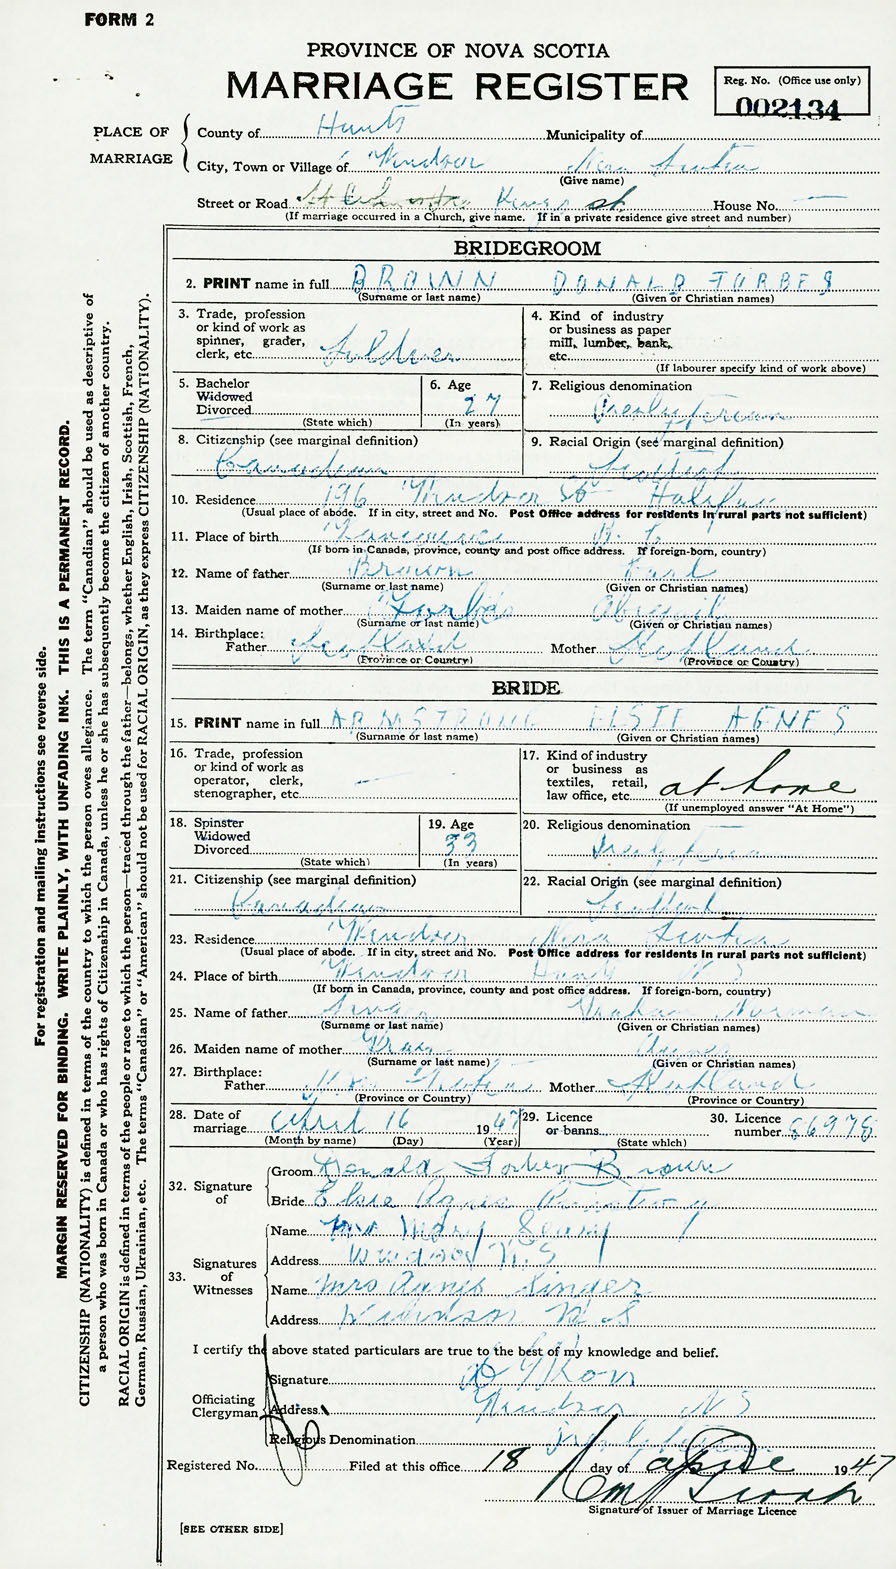 FORM 2
PROVINCE OF NOVA SCOTIA
MARRIAGE REGISTER
Reg. No. (Office use only)
002134
PLACE OF MARRIAGE
County of Hants Municipality of
City, Town or Village of Windsor Nova Scotia
(Give name)
Street or Road King's St. House No. —
(If marriage occurred in a Church, give name. If in a private residence give street and number)
BRIDEGROOM
2. PRINT name in full BROWN DONALD FORBES
(Surname or last name) (Given or Christian names)
3. Trade, profession or kind of work as spinner, grader, clerk, etc. Soldier
4. Kind of industry or business as paper mill, lumber, bank, etc.
(If labourer specify kind of work above)
5. Bachelor Widowed Divorced
(State which)
6. Age 27
(In years)
7. Religious denomination Presbyterian
8. Citizenship (see marginal definition) Canadian
9. Racial Origin (see marginal definition) Scottish
10. Residence 196 Windsor St Halifax
(Usual place of abode. If in city, street and No. Post Office address for residents in rural parts not sufficient)
11. Place of birth Vancouver B. C.
(If born in Canada, province, county and post office address. If foreign-born, country)
12. Name of father Brown
(Surname or last name) (Given or Christian names)
13. Maiden name of mother Forbes Abigail
(Surname or last name) (Given or Christian names)
14. Birthplace:
Father Scotland Mother Scotland
(Province or Country) (Province or Country)
BRIDE
15. PRINT name in full ARMSTRONG ELSIE AGNES
(Surname or last name) (Given or Christian names)
16. Trade, profession or kind of work as operator, clerk, stenographer, etc. —
17. Kind of industry or business as textiles, retail, law office, etc. at home
(If unemployed answer "At Home")
18. Spinster Widowed Divorced
(State which)
19. Age 33
(In years)
20. Religious denomination Presbyterian
21. Citizenship (see marginal definition) Canadian
22. Racial Origin (see marginal definition)
23. Residence Windsor Nova Scotia
(Usual place of abode. If in city, street and No. Post Office address for residents in rural parts not sufficient)
24. Place of birth Windsor Hants N S
(If born in Canada, province, county and post office address. If foreign-born, country)
25. Name of father Graham Norman
(Surname or last name) (Given or Christian names)
26. Maiden name of mother Agnes
(Surname or last name) (Given or Christian names)
27. Birthplace:
Father Nova Scotia Mother Scotland
(Province or Country) (Province or Country)
28. Date of marriage April 16 1947
(Month by name) (Day) (Year)
29. Licence or banns
(State which)
30. Licence number 86978
32. Signature of
Groom Donald Forbes Brown
Bride Elsie Agnes Armstrong
33. Signatures of Witnesses
Name Mrs Mary
Address Windsor N.S
Name Mrs Agnes Kinder
Address Windsor N S
I certify the above stated particulars are true to the best of my knowledge and belief.
Officiating Clergyman
Signature
Address Windsor N S
Religious Denomination Presbyterian
Registered No. Filed at this office 18 day of April 1947
Signature of Issuer of Marriage Licence
[SEE OTHER SIDE]
For registration and mailing instructions see reverse side.
MARGIN RESERVED FOR BINDING. WRITE PLAINLY, WITH UNFADING INK. THIS IS A PERMANENT RECORD.
CITIZENSHIP (NATIONALITY) is defined in terms of the country to which the person owes allegiance. The term "Canadian" should be used as descriptive of
a person who was born in Canada or who has rights of Citizenship in Canada, unless he or she has subsequently become the citizen of another country.
RACIAL ORIGIN is defined in terms of the people or race to which the person—traced through the father—belongs, whether English, Irish, Scottish, French,
German, Russian, Ukrainian, etc. The terms "Canadian" or "American" should not be used for RACIAL ORIGIN, as they express CITIZENSHIP (NATIONALITY).